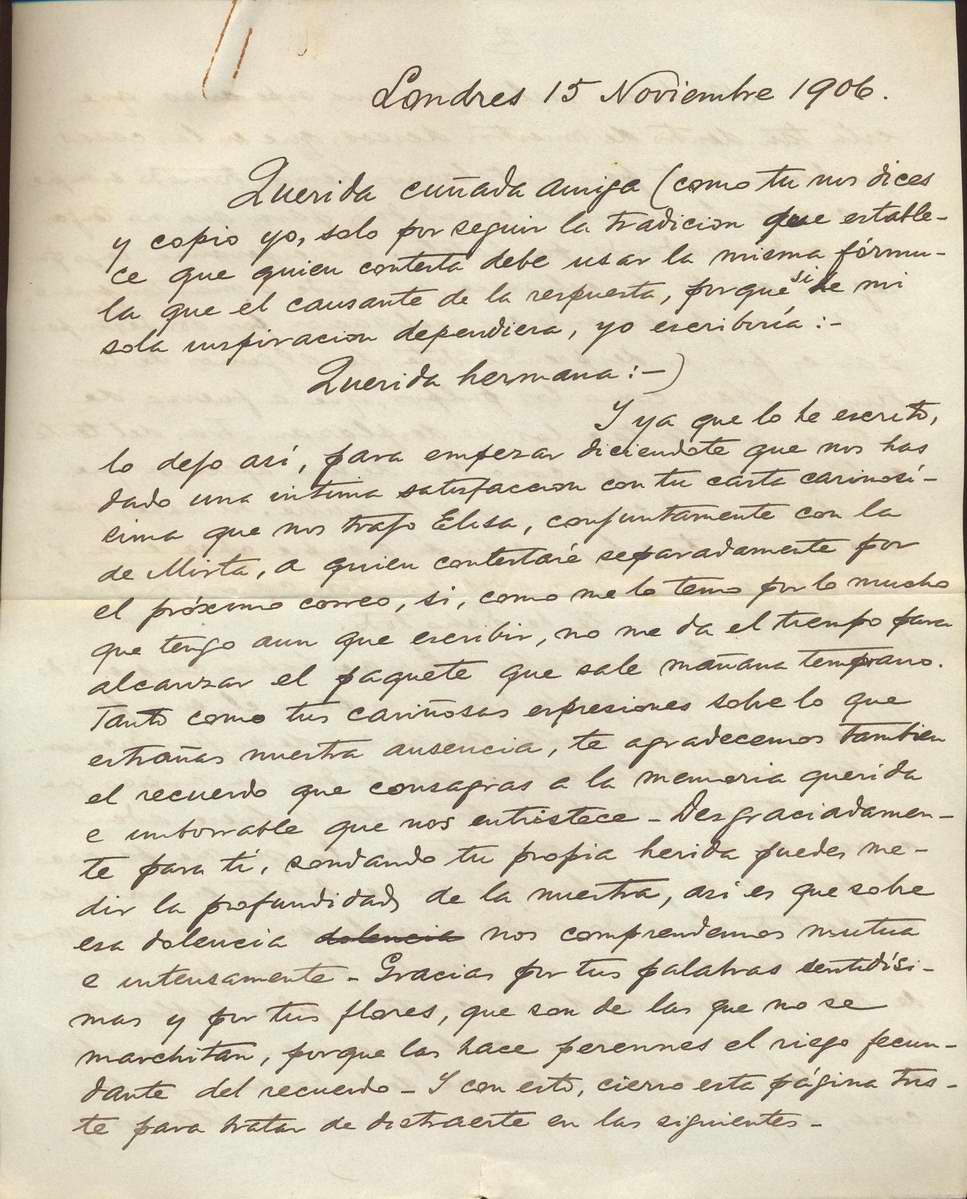 Londres 15 Noviembre 1906.
Querida cuñada amiga (como tu nos dices
y copio yo, solo por seguir la tradicion que estable-
ce que quien contesta debe usar la misma fórmu-
la que el causante de la respuesta, porque si de mi
sola inspiracion dependiera, yo escribiría:-
Querida hermana:-)
Y ya que lo he escrito,
lo dejo así, para empezar diciendote que nos has
dado una intima satisfaccion con tu carta cariñosí-
cima que nos trajo Elisa, conjuntamente con la
de Mirta, a quien contestaré separadamente por
el próximo correo, si, como me lo temo por lo mucho
que tengo aun que escribir, no me da el tiempo para
alcanzar el paquete que sale mañana temprano.
Tanto como tus cariñosas espresiones sobre lo que
estrañas nuestra ausencia, te agradecemos tambien
el recuerdo que consagras a la memoria querida
e imborrable que nos entristece - Desgraciadamen-
te para tí, sondando tu propia herida puedes me-
dir la profundidad de la nuestra, asi es que sobre
esa dolencia dolencia nos comprendemos mutua
e intensamente - Gracias por tus palabras sentidísi-
mas y por tus flores, que son de las que no se
marchitan, porque las hace perennes el riego fecun-
dante del recuerdo - Y con esto, cierro esta página tris-
te para tratar de distraerte en las siguientes -